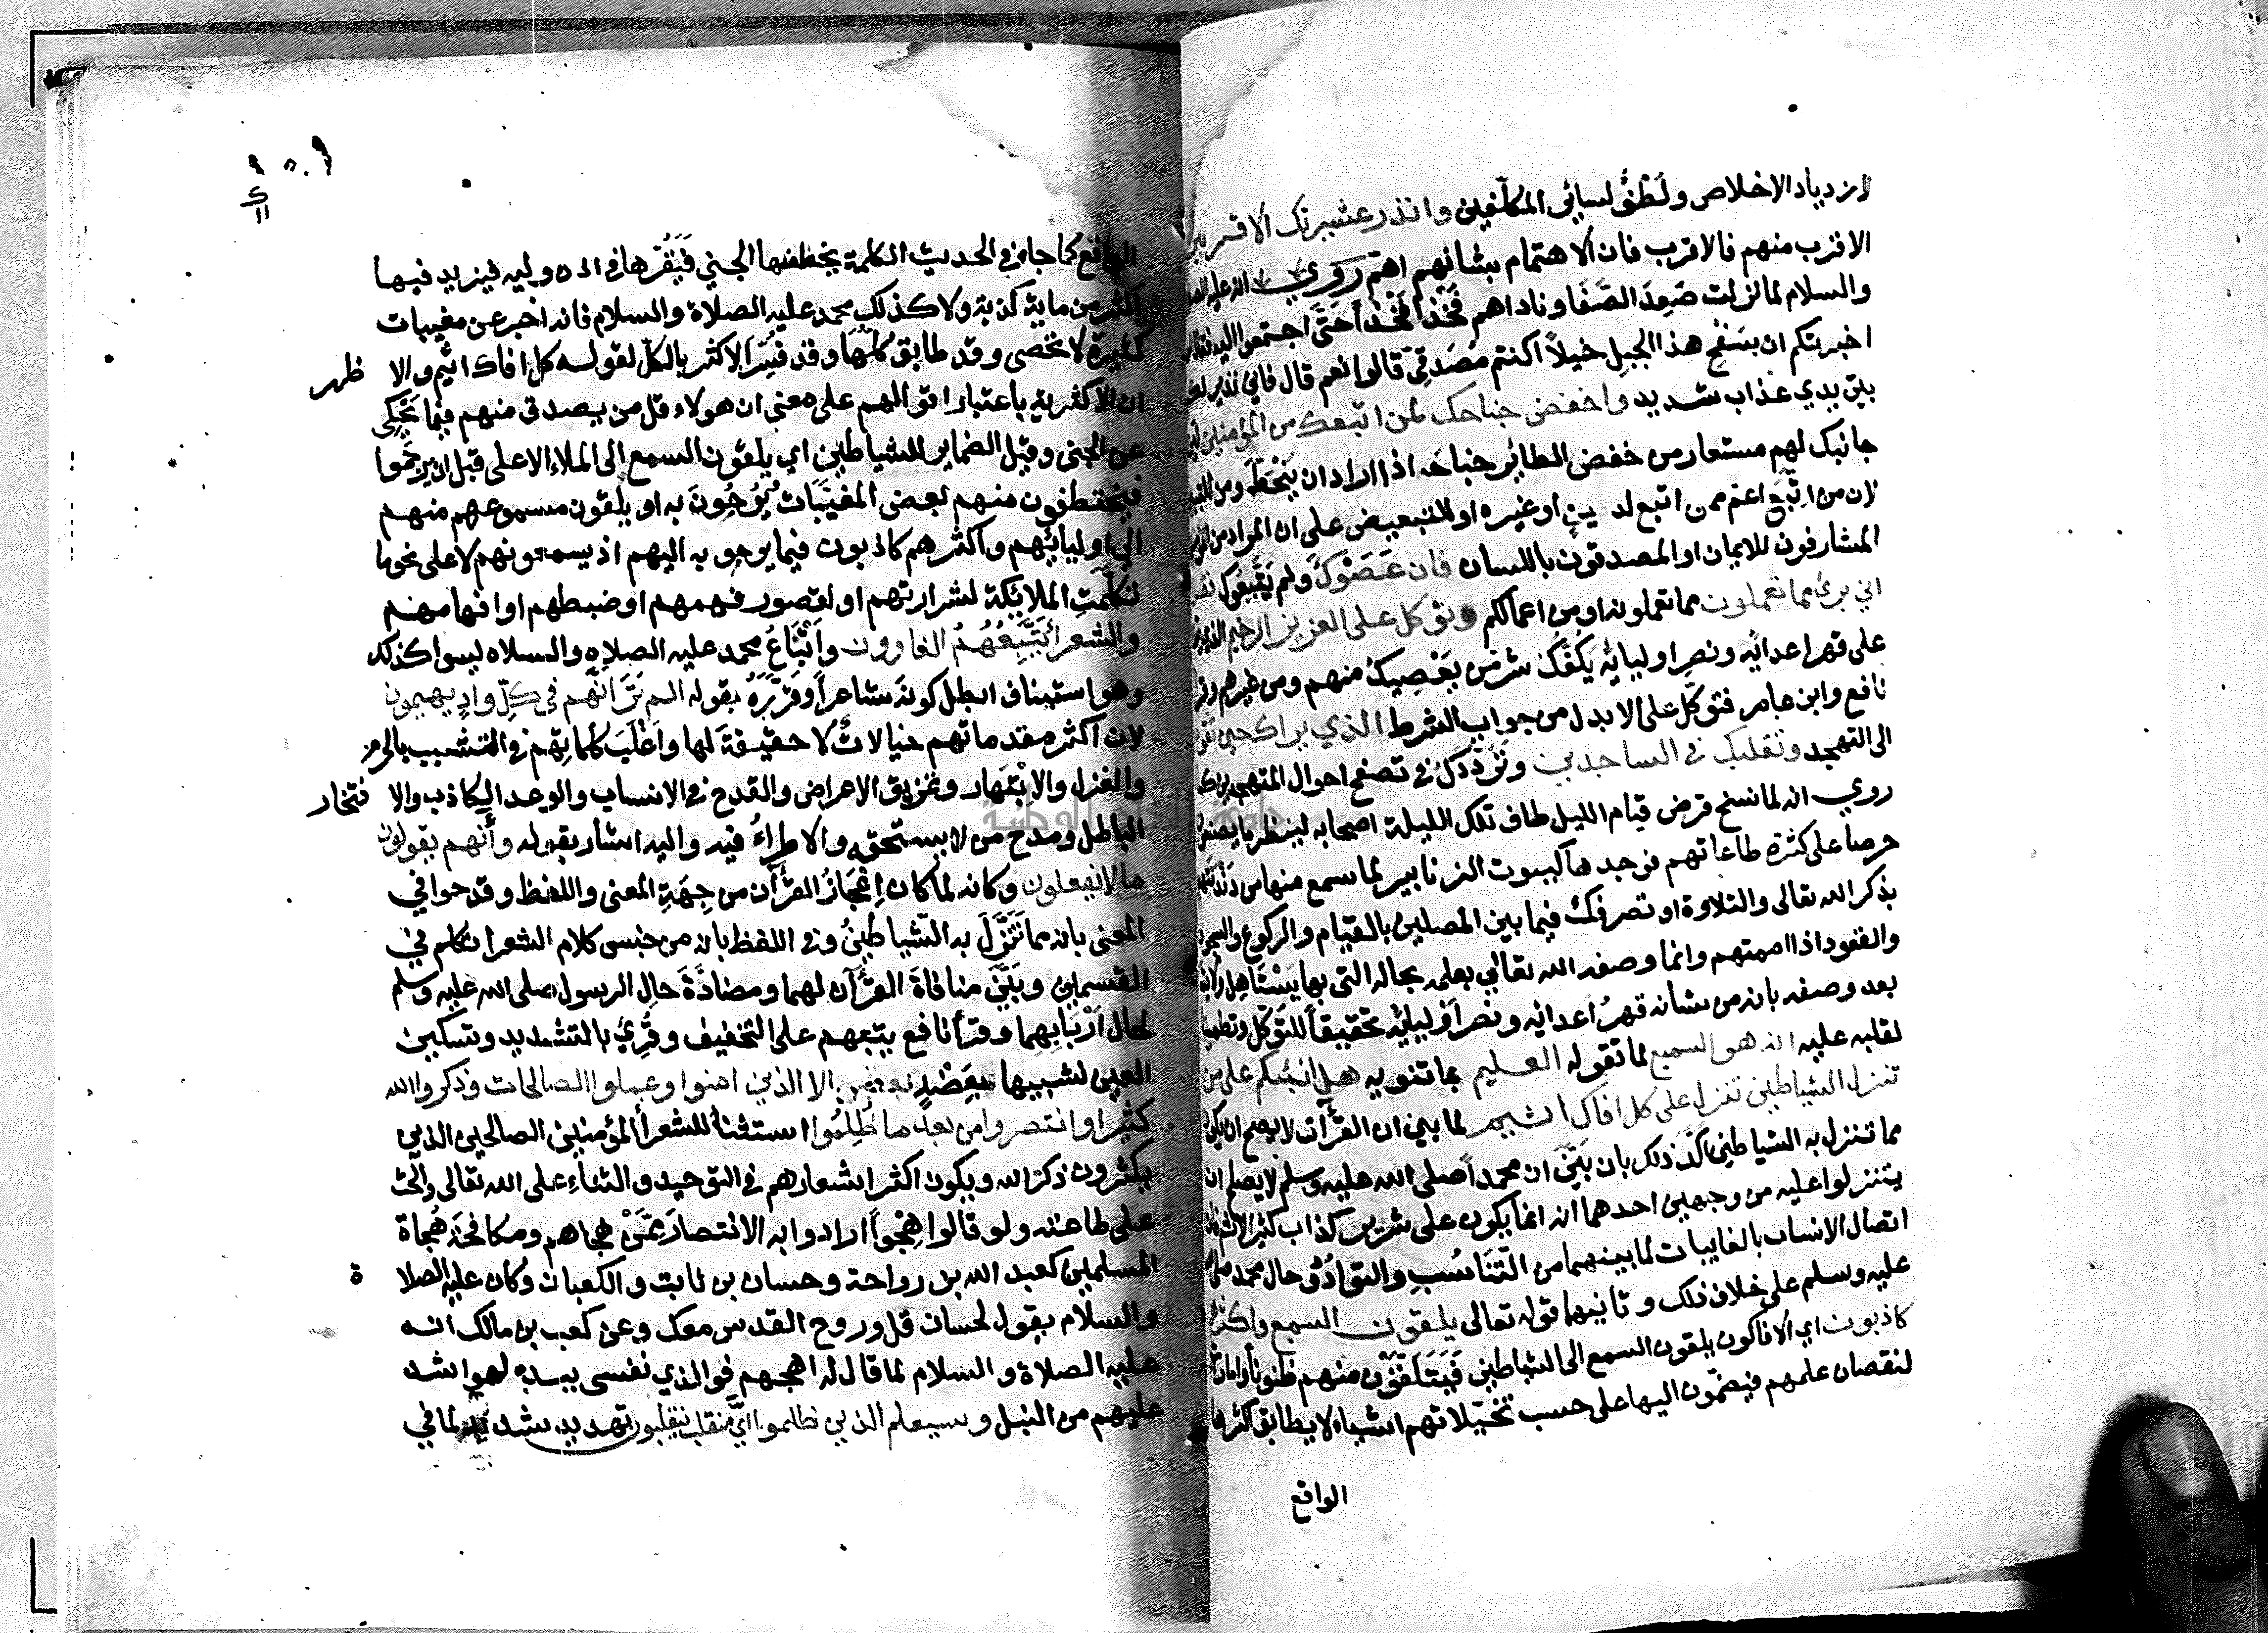 لازدياد الاخلاص ولُطْفٌ لسائر المكلّفين وانذر عشيرتك الاقربين
الاقرب منهم فالاقرب فان الاهتمام بشأنهم اهمّ روي انه عليه الصلاة
والسلام لما نزلت صَعِدَ الصَّفَا وناداهم فَخْذاً فَخْذاً حَتَّى اجتمعوا اليه فقال لو
اخبرتكم ان بسَفْح هذا الجبل خيلاً اكنتم مُصَدّقيَّ قالوا نعم قال فاني نذير لكم
بين يدي عذاب شديد واخفض جناحك لمن اتبعك من المؤمنين لين
جانبك لهم مستعار من خفض الطائر جناحه اذا اراد ان يَنْحَطَّ ومن للتبيين
لان من اتّبَعَ اعم ممن اتبع لدين او غيره او للتبعيض على ان المراد من المؤمنين
المشارفون للايمان او المصدقون باللسان فان عَصَوْكَ ولم يَتّبعُوكَ فقل
اني بريء مما تعملون مما تعملونه او من اعمالكم وتوكل على العزيز الرحيم الذي يقدر
على قهر اعدائه ونصر اوليائه يَكْفِكَ شر من يَعْصِيكَ منهم ومن غيرهم وقرأ
نافع وابن عامر فتوكّل على الابدال من جواب الشرط الذي يراك حين تقوم
الى التهجد وتقلبك في الساجدين وتَرَدُّدَكَ في تصفح احوال المتهجدين كما
روي انه لما نسخ فرض قيام الليل طاف تلك الليلة اصحابه لينظر ما يصنعون
حرصا على كثرة طاعاتهم فوجدها كبيوت الزنابير لما سمع منها من دَنْدَنَتِهم
بذكر الله تعالى والتلاوة او تصرفك فيما بين المصلين بالقيام والركوع والسجود
والقعود اذا اممتهم وانما وصفه الله تعالى بعلمه بحاله التي بها يَسْتَاهِلُ ولايته
بعد وصفه بانه من شأنه قهرُ اعدائه ونصر اوليائه تحقيقاً للتوكّل وتطمينا
لقلبه عليه انه هو السميع لما تقوله العليم بما تنويه هل انبئكم على من
تنزل الشياطين تنزل على كل افاك اثيم لما بين ان القرآن لا يصح ان يكون
مما تتنزل به الشياطين اكّد ذلك بان بَيَّنَ ان محمداً صلى الله عليه وسلم لا يصلح ان
يتنزلوا عليه من وجهين احدهما انه انما يكون على شرير كذاب كثير الاثم فان
اتصال الانسان بالغايبات لما بينهما من التّنَاسُبِ والتوادِّ وحال محمد صلى الله
عليه وسلم على خلاف ذلك وثانيهما قوله تعالى يلقون السمع واكثرهم
كاذبون اي الافّاكون يلقون السمع الى الشياطين فَيَتَلَقَّوْن منهم ظنونا وامارات
لنقصان علمهم فيضمّون اليها على حسب تخيّلاتهم اشياء لا يطابق اكثرها
الواقع
الواقع كما جاء في الحديث الكلمة يخطفها الجني فَيَقُرّها في اذن وليه فيزيد فيها
اكثر من ماية كذبة ولا كذلك محمد عليه الصلاة والسلام فانه اخبر عن مغيبات
كثيرة لا تحصى وقد طابق كلّها وقد فسّر الاكثر بالكل لقوله كل افاك اثيم والا ظهر
ان الاكثرية باعتبار اقوالهم على معنى ان هولاء قل من يصدق منهم فيما يَحْكِى
عن الجنى وقيل الضماير للشياطين اي يلقون السمع الى الملاء الاعلى قبل ان يرجَموا
فيختطفون منهم بعض المغيبات يُوُحُونَ به او يلقون مسموعهم منهم
الى اوليائهم واكثرهم كاذبون فيما يوحو به اليهم اذ يسمعونهم لا على نحو ما
تكلّمت الملائكة لشرارتهم او لقصور فهمهم او ضبطهم او افهامهم
والشعرا يَتَّبِعُهُمُ الغاوون وأتْبَاعُ محمد عليه الصلاه والسلاه ليسوا كذلك
وهو استيناف ابطل كونه شاعراً وقَرّرَهُ بقوله الم تَرَ انّهُم في كلّ وادٍ يهيمون
لان اكثر مقدماتهم خيالاتٌ لا حقيقة لها وأغْلَبَ كلماتِهم في التشبيب بالحرم
والغزل والابْتِهَار وتمزيق الاعراض والقدح في الانساب والوعد الكاذب والا فتخار
الباطل ومدح من لا يستحقه والاطراءُ فيه واليه اشار بقوله وأنهم يقولون
ما لا يفعلون وكانه لما كان اِعْجَازُ القرْآن من جِهَةِ المعنى واللفظ وقدحوا في
المعنى بانه مما تَتَنَزَّلُ به الشياطينُ وفي اللفظ بانه من جنس كلام الشعرا تكلم في
القسمين وبَيَّنَ منافاةَ القرْآن لهما ومضادَّةَ حال الرسول صلى الله عليه وسلم
لحال اَرْبَابِهِما وقرأ نافع يتبعهم على التخفيف وقُرِئَ بالتشديد وتسكين
العين تشبيها لبَعِضْدٍ الا الذين امنوا وعملوا الصالحات وذكروا الله
كثيرا وانتصروا من بعد ما ظُلِمُوا استثناءٌ للشعرأ المؤمنين الصالحين الذين
يكثرون ذكر الله ويكون اكثر اشعارهم في التوحيد والثناءِ على الله تعالى والحث
على طاعته ولو قالوا هِجْواً ارادوا به الانتصارَ مِمَّنْ هجاهم ومكافحَة هُجاة
المسلمين كعبد الله بن رواحة وحسان بن ثابت والكعبان وكان عليه الصلا ة
والسلام يقول لحسان قل وروح القدس معك وعن كعب بن مالك انه
عليه الصلاة والسلام لما قال له اهجهم فوالذي نفسى بيده لهو اشد
عليهم من النبل وسيعلم الذين ظلموا ايَّ منقلب ينقلبون تهديد شديد لما في